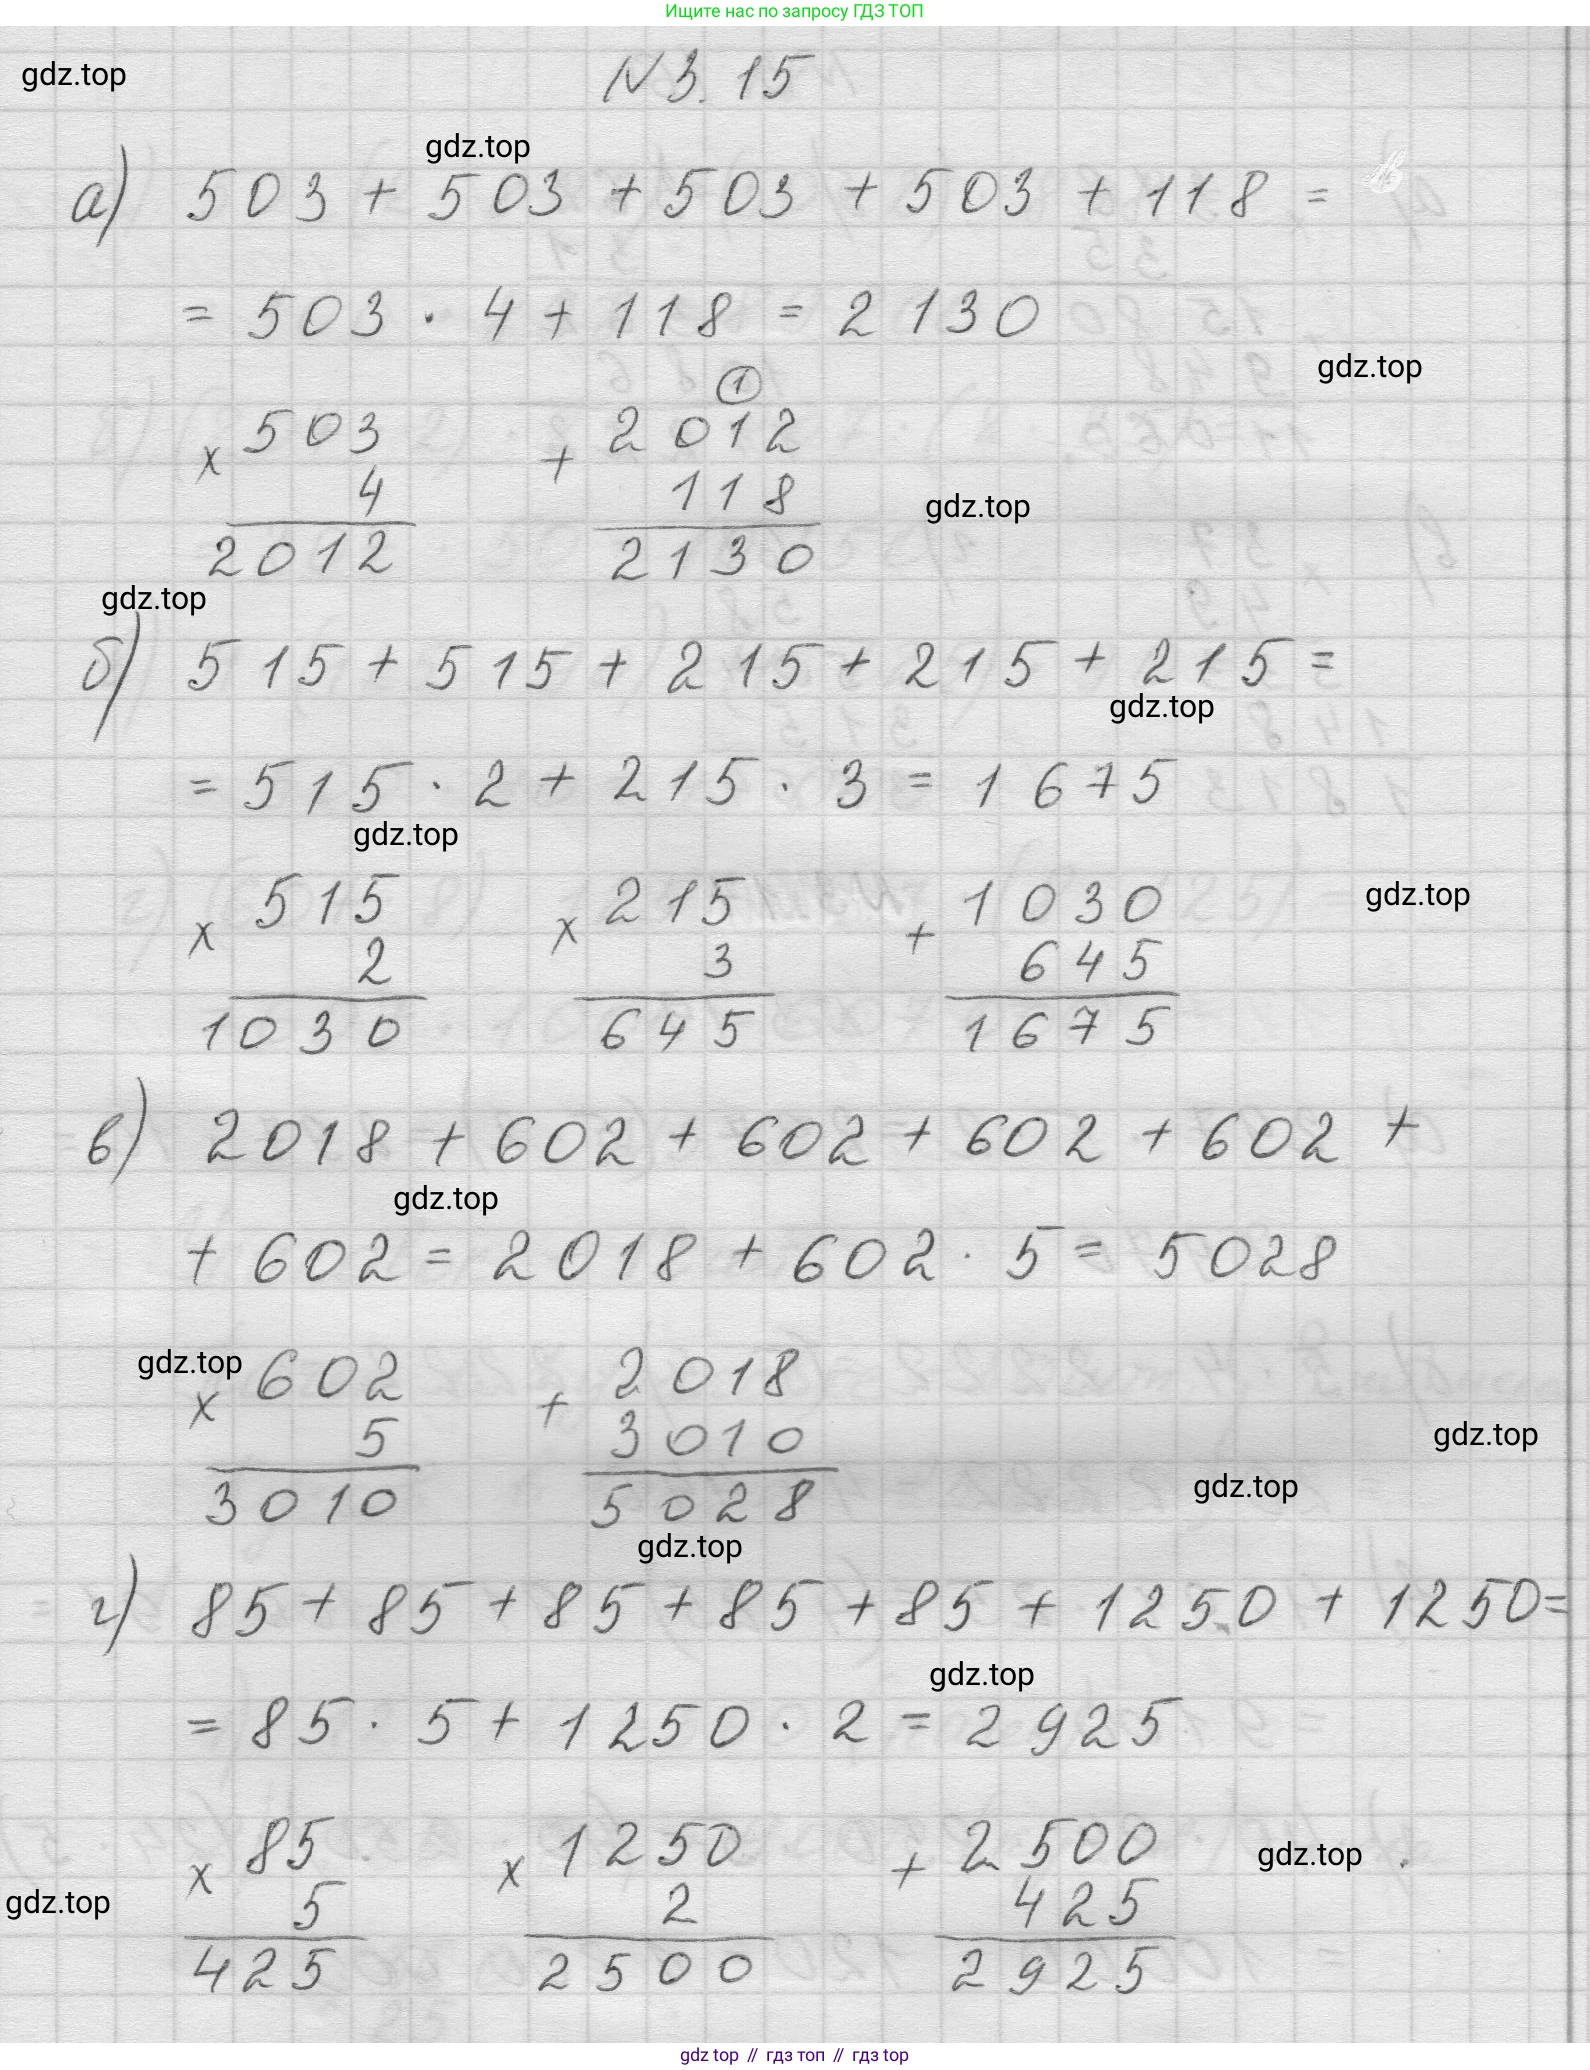 Ищите нас по запросу ГДЗ ТОП
gdz.top
N 3.15
gdz.top
а) 503 + 503 + 503 + 503 + 118 =
= 503 · 4 + 118 = 2130
gdz.top
1
× 503 + 2012
4 118
gdz.top
2012 2130
gdz.top
б) 515 + 515 + 215 + 215 + 215 =
gdz.top
= 515 · 2 + 215 · 3 = 1675
gdz.top
× 515 × 215 + 1030
gdz.top
2 3 645
1030 645 1675
в) 2018 + 602 + 602 + 602 + 602 +
gdz.top
+ 602 = 2018 + 602 · 5 = 5028
gdz.top
× 602 + 2018
5 3010
gdz.top
3010 5028
gdz.top
gdz.top
г) 85 + 85 + 85 + 85 + 85 + 1250 + 1250 =
gdz.top
= 85 · 5 + 1250 · 2 = 2925
× 85 × 1250 + 2500
gdz.top
5 2 425
gdz.top
425 2500 2925
gdz top // гдз топ // гдз.top